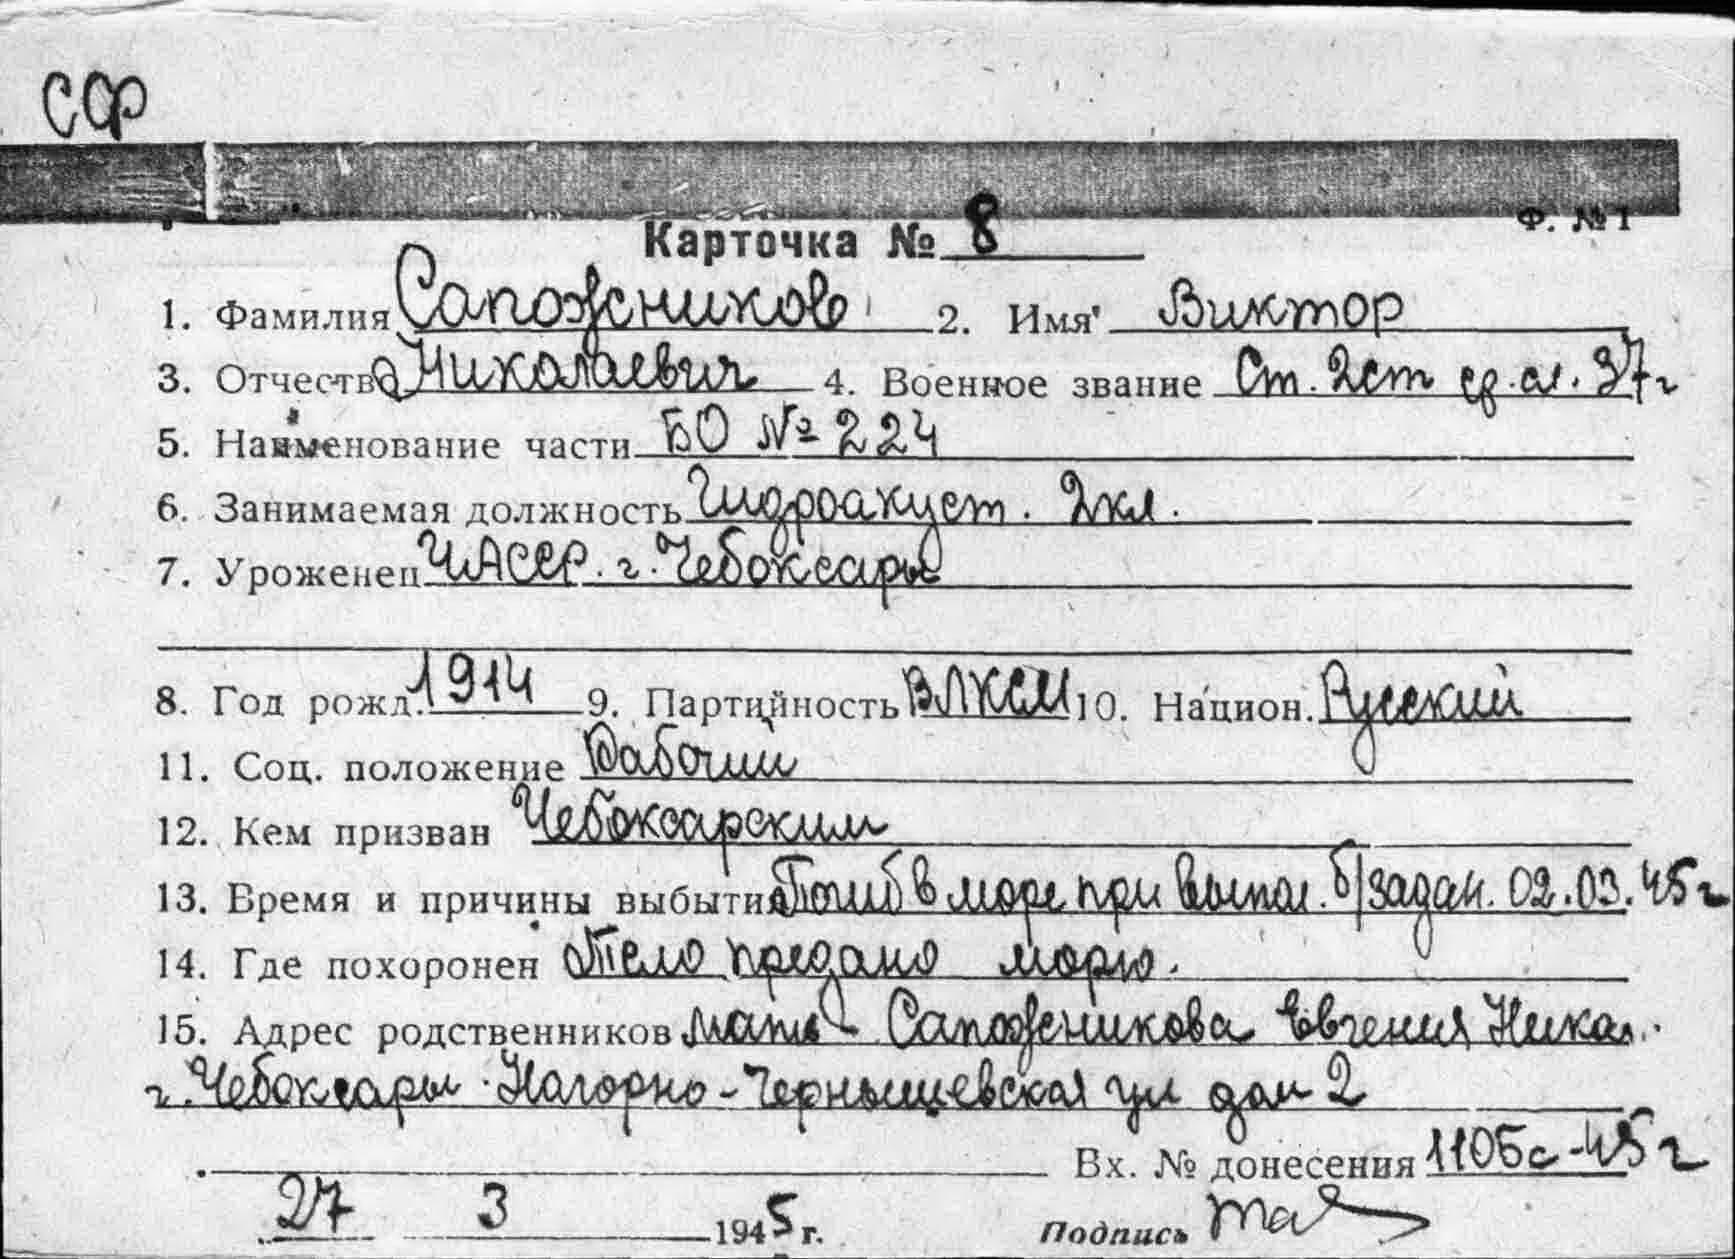 СФ
Ф. № 1
Карточка № 8
1. Фамилия Сапожников 2. Имя Виктор
3. Отчество Николаевич 4. Военное звание Ст. 2ст ср. сл. 37г
5. Наименование части БО № 224
6. Занимаемая должность Гидроакуст. 2кл.
7. Уроженец ЧАССР. г. Чебоксары
8. Год рожд. 1914 9. Партийность ВЛКСМ 10. Национ. Русский
11. Соц. положение Рабочий
12. Кем призван Чебоксарским
13. Время и причины выбытия Погиб в море при выпол. б/задан. 02.03.45г
14. Где похоронен Тело предано морю.
15. Адрес родственников мать - Сапожникова Евгения Никол.
г. Чебоксары. Нагорно-Чернышевская ул дом 2
Вх. № донесения 1105с-45г
27 3 1945 г. Подпись